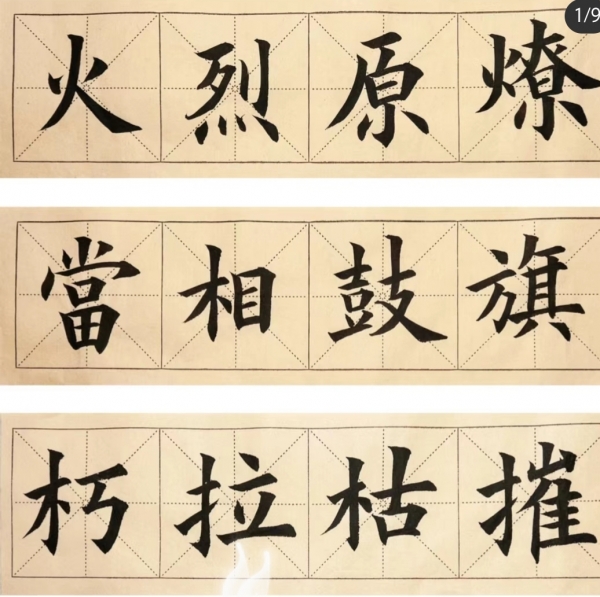 1/9
燎原烈火
旗鼓相當
摧枯拉朽